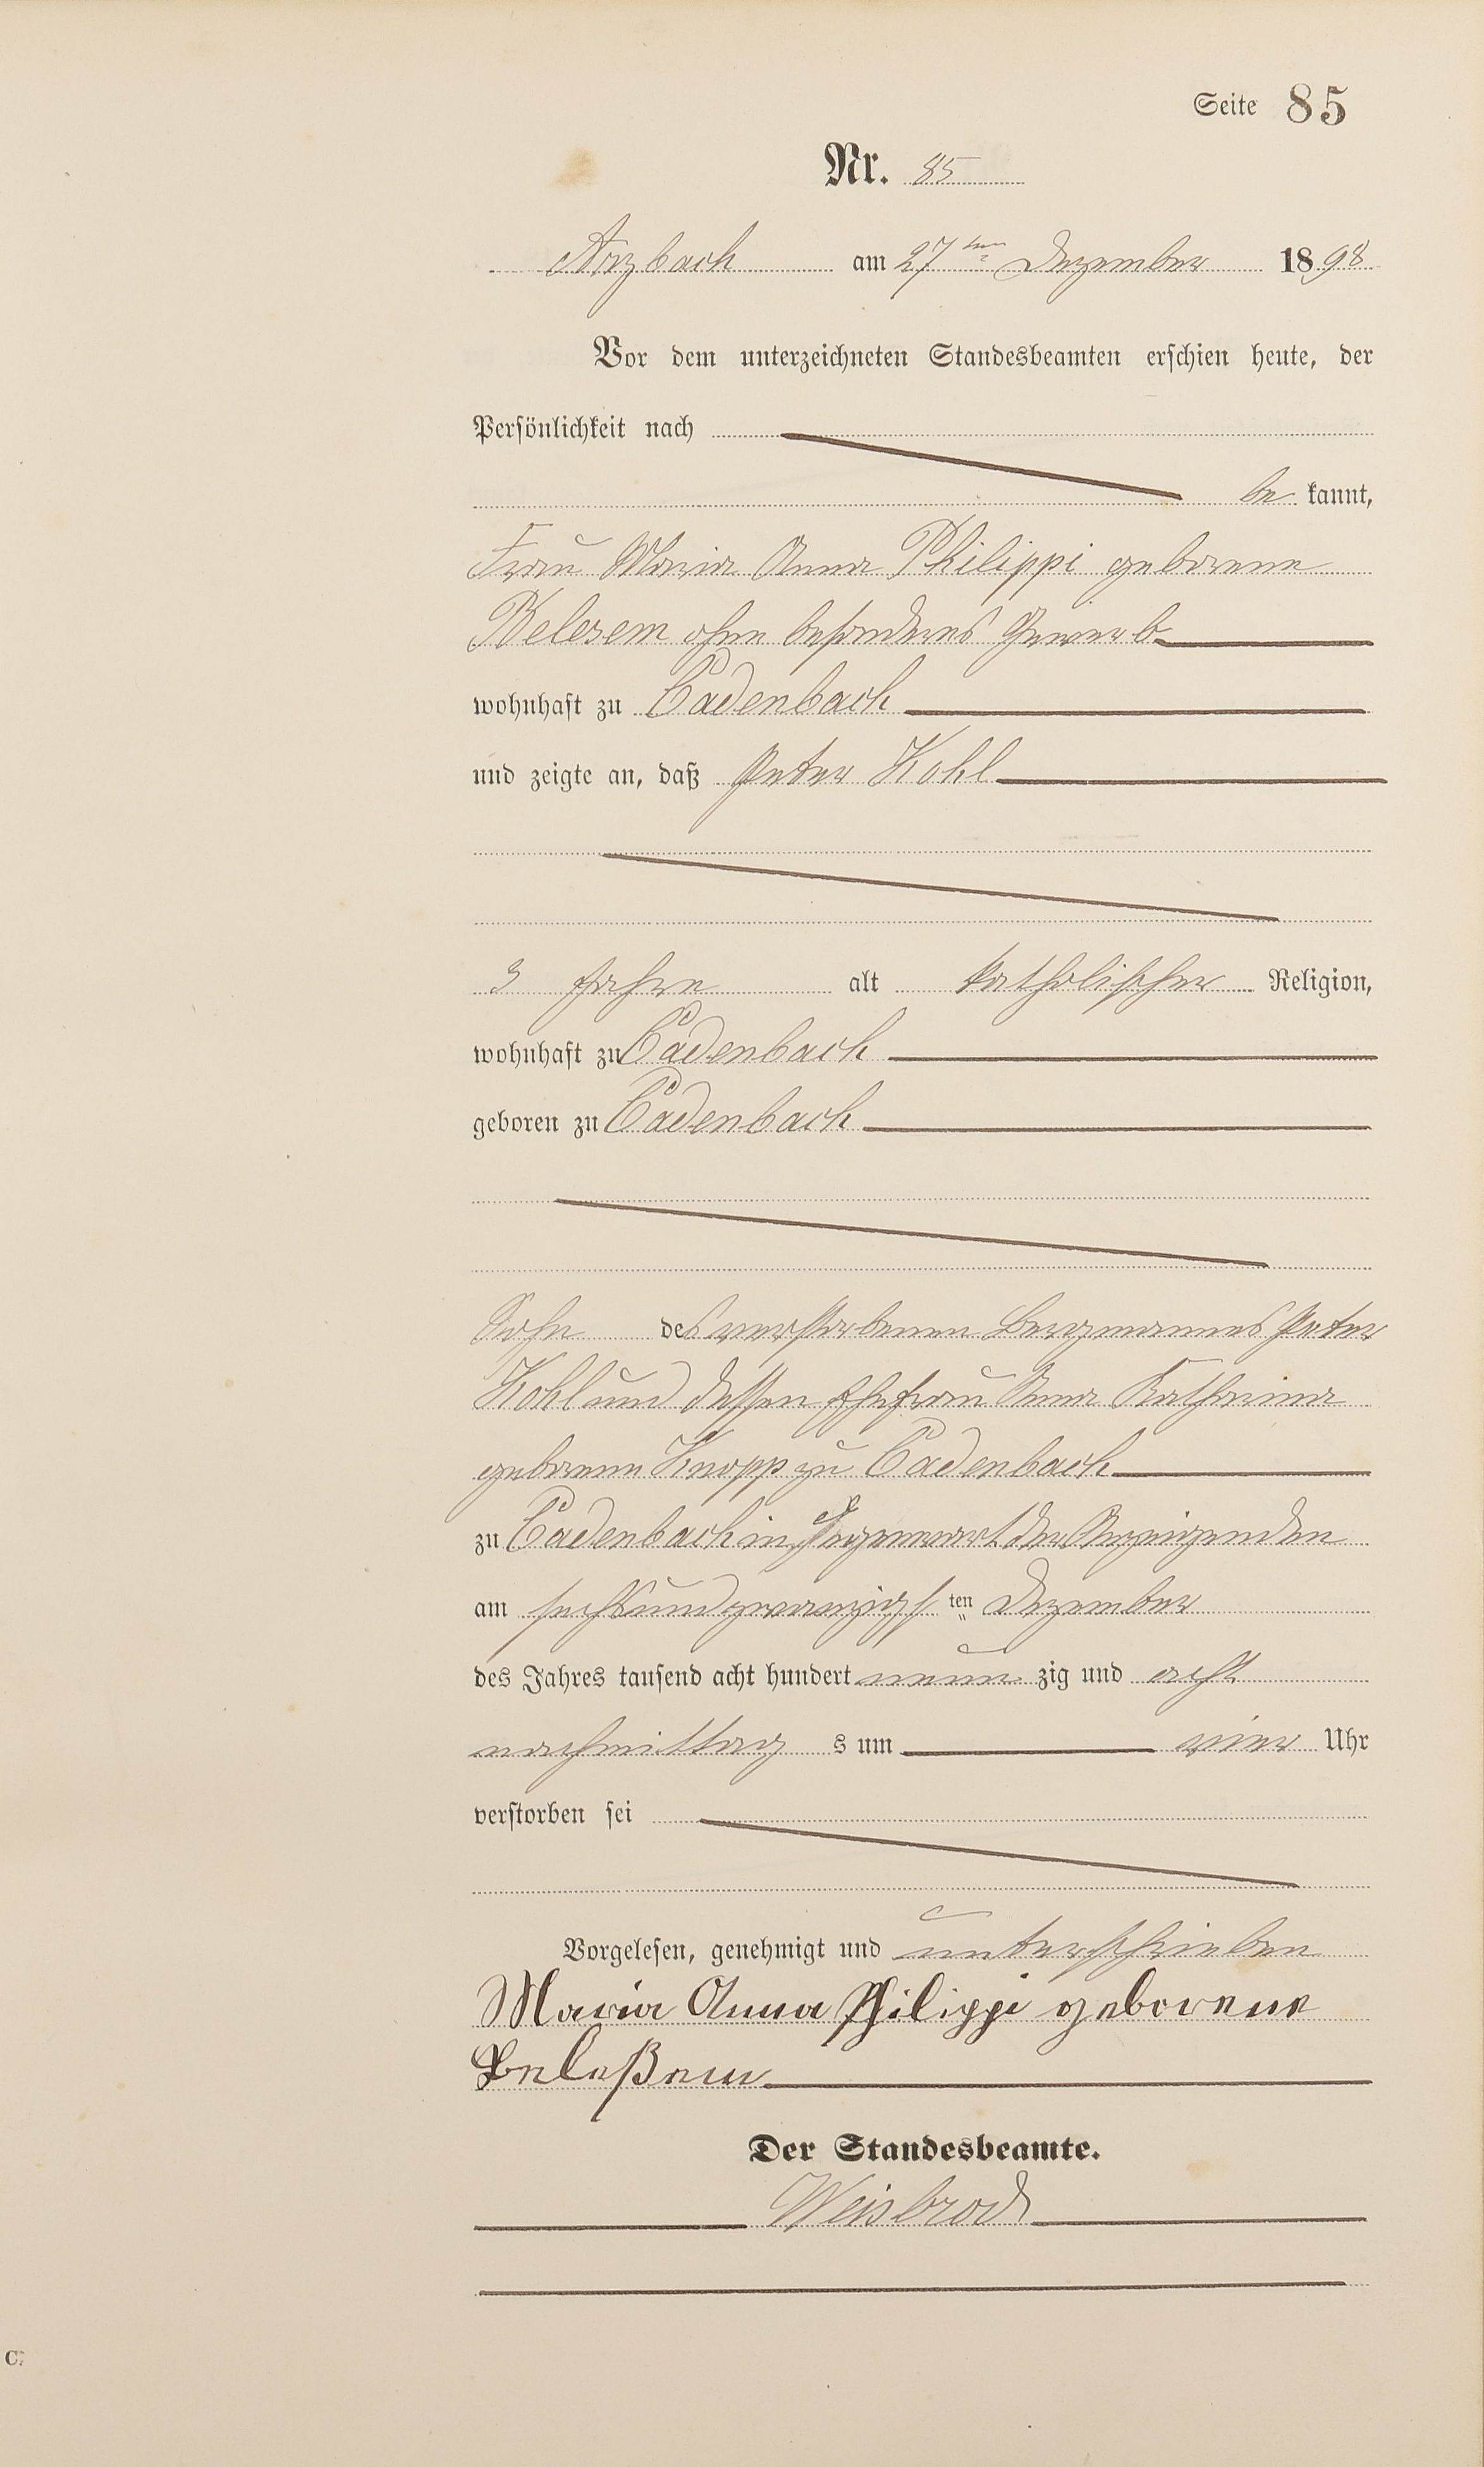 Seite 85
Nr. 85
Arzbach am 27ten Dezember 1898
Vor dem unterzeichneten Standesbeamten erschien heute, der
Persönlichkeit nach
be kannt,
Frau Maria Anna Philippi geborene
ohne besonderes Gewerb
wohnhaft zu Cadenbach
und zeigte an, daß Peter Kohl
3 Jahre alt katholischer Religion,
wohnhaft zu Cadenbach
geboren zu Cadenbach
Sohn des verstorbenen Bergmannes Peter
Kohl und dessen Ehefrau Anna Katharina
geborene Knopp zu Cadenbach
zu Cadenbach in Gegenwart der Anzeigenden
am sechsundzwanzigs ten Dezember
des Jahres tausend acht hundert neun zig und acht
nachmittag s um vier Uhr
verstorben sei
Vorgelesen, genehmigt und unterschrieben
Maria Anna Philippi geborene
Beleßem
Der Standesbeamte.
Weisbrod